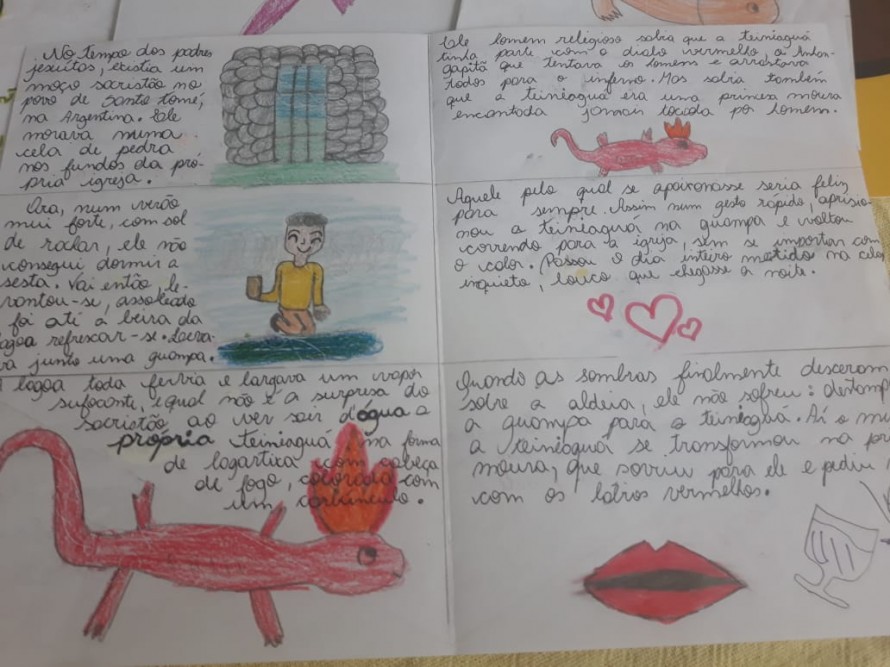 No tempo dos padres
jesuítas, existia um
moço sacristão no
povo de Santo Tomé,
na Argentina. Ele
morava numa
cela de pedra
nos fundos da pró-
pria igreja.
Ora, num verão
mui forte, com sol
de rachar, ele não
consegui dormir a
sesta. Vai então, le-
vantou-se, assoleado
foi até a beira da
lagoa refrescar-se. Leva-
va junto uma guampa.
lagoa toda fervia e largava um vapor
sufocante, e qual não é a surpresa do
sacristão ao ver sair d'água a
própria teiniaguá na forma
de lagartixa com cabeça
de fogo, colorada com
um carbúnculo.
Ele homem religioso sabia que a teiniaguá
tinha parte com o diabo vermelho, o Anhan-
gapitã que tentava os homens e arrastava
todos para o inferno. Mas sabia também
que a teiniaguá era uma princesa moura
encantada jamais tocada por homem.
Aquele pelo qual se apaixonasse seria feliz
para sempre. Assim num gesto rápido, aprisio-
nou a teiniaguá na guampa e voltou
correndo para a igreja, sem se importar com
o calor. Passou o dia inteiro metido na cela
inquieto, louco que chegasse a noite.
Quando as sombras finalmente desceram
sobre a aldeia, ele não sofreu: destamp
a guampa para a teiniaguá. Aí o
a teiniaguá se transformou na
moura, que sorriu para ele e pediu
com os lábios vermelhos.